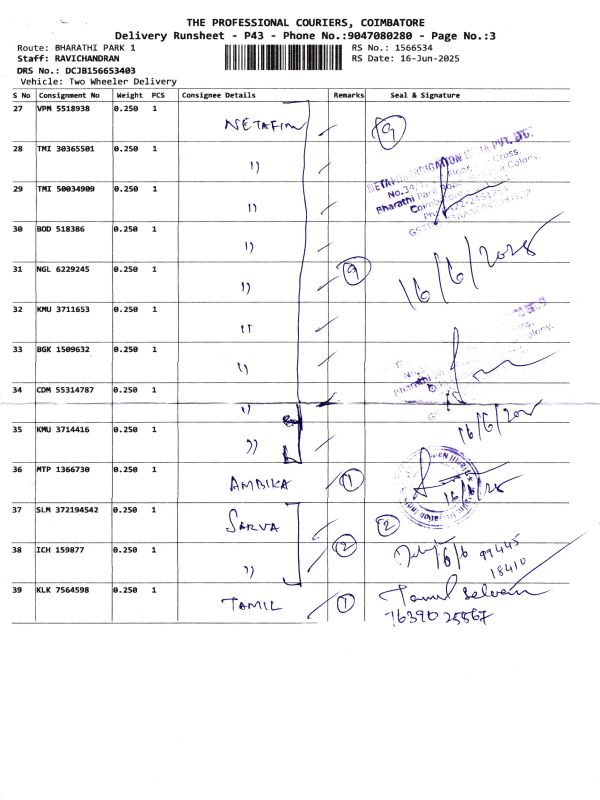 THE PROFESSIONAL COURIERS, COIMBATORE
Delivery Runsheet - P43 - Phone No.:9047080280 - Page No.:3
Route: BHARATHI PARK 1 RS No.: 1566534
Staff: RAVICHANDRAN RS Date: 16-Jun-2025
DRS No.: DCJB156653403
Vehicle: Two Wheeler Delivery
S No Consignment No Weight PCS Consignee Details Remarks Seal & Signature
27 VPM 5518938 0.250 1
NETAFIM 9
28 TMI 30365501 0.250 1
"
29 TMI 50034909 0.250 1
"
30 BOD 518386 0.250 1
"
16/6/2025
31 NGL 6229245 0.250 1 9
"
32 KMU 3711653 0.250 1
"
33 BGK 1509632 0.250 1
"
34 CDM 55314787 0.250 1
"
16/6/2025
35 KMU 3714416 0.250 1
"
36 MTP 1366730 0.250 1
AMBIKA 1 16/6/25
37 SLM 372194542 0.250 1
SARVA 2
38 ICH 159877 0.250 1 2
" 16/6 99445
18410
39 KLK 7564598 0.250 1
TAMIL 1 Tamil Selvan